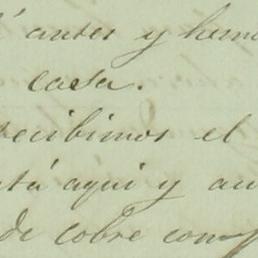 antes y hem
casa.
recibimos el
está aquí y au
de cobre comp